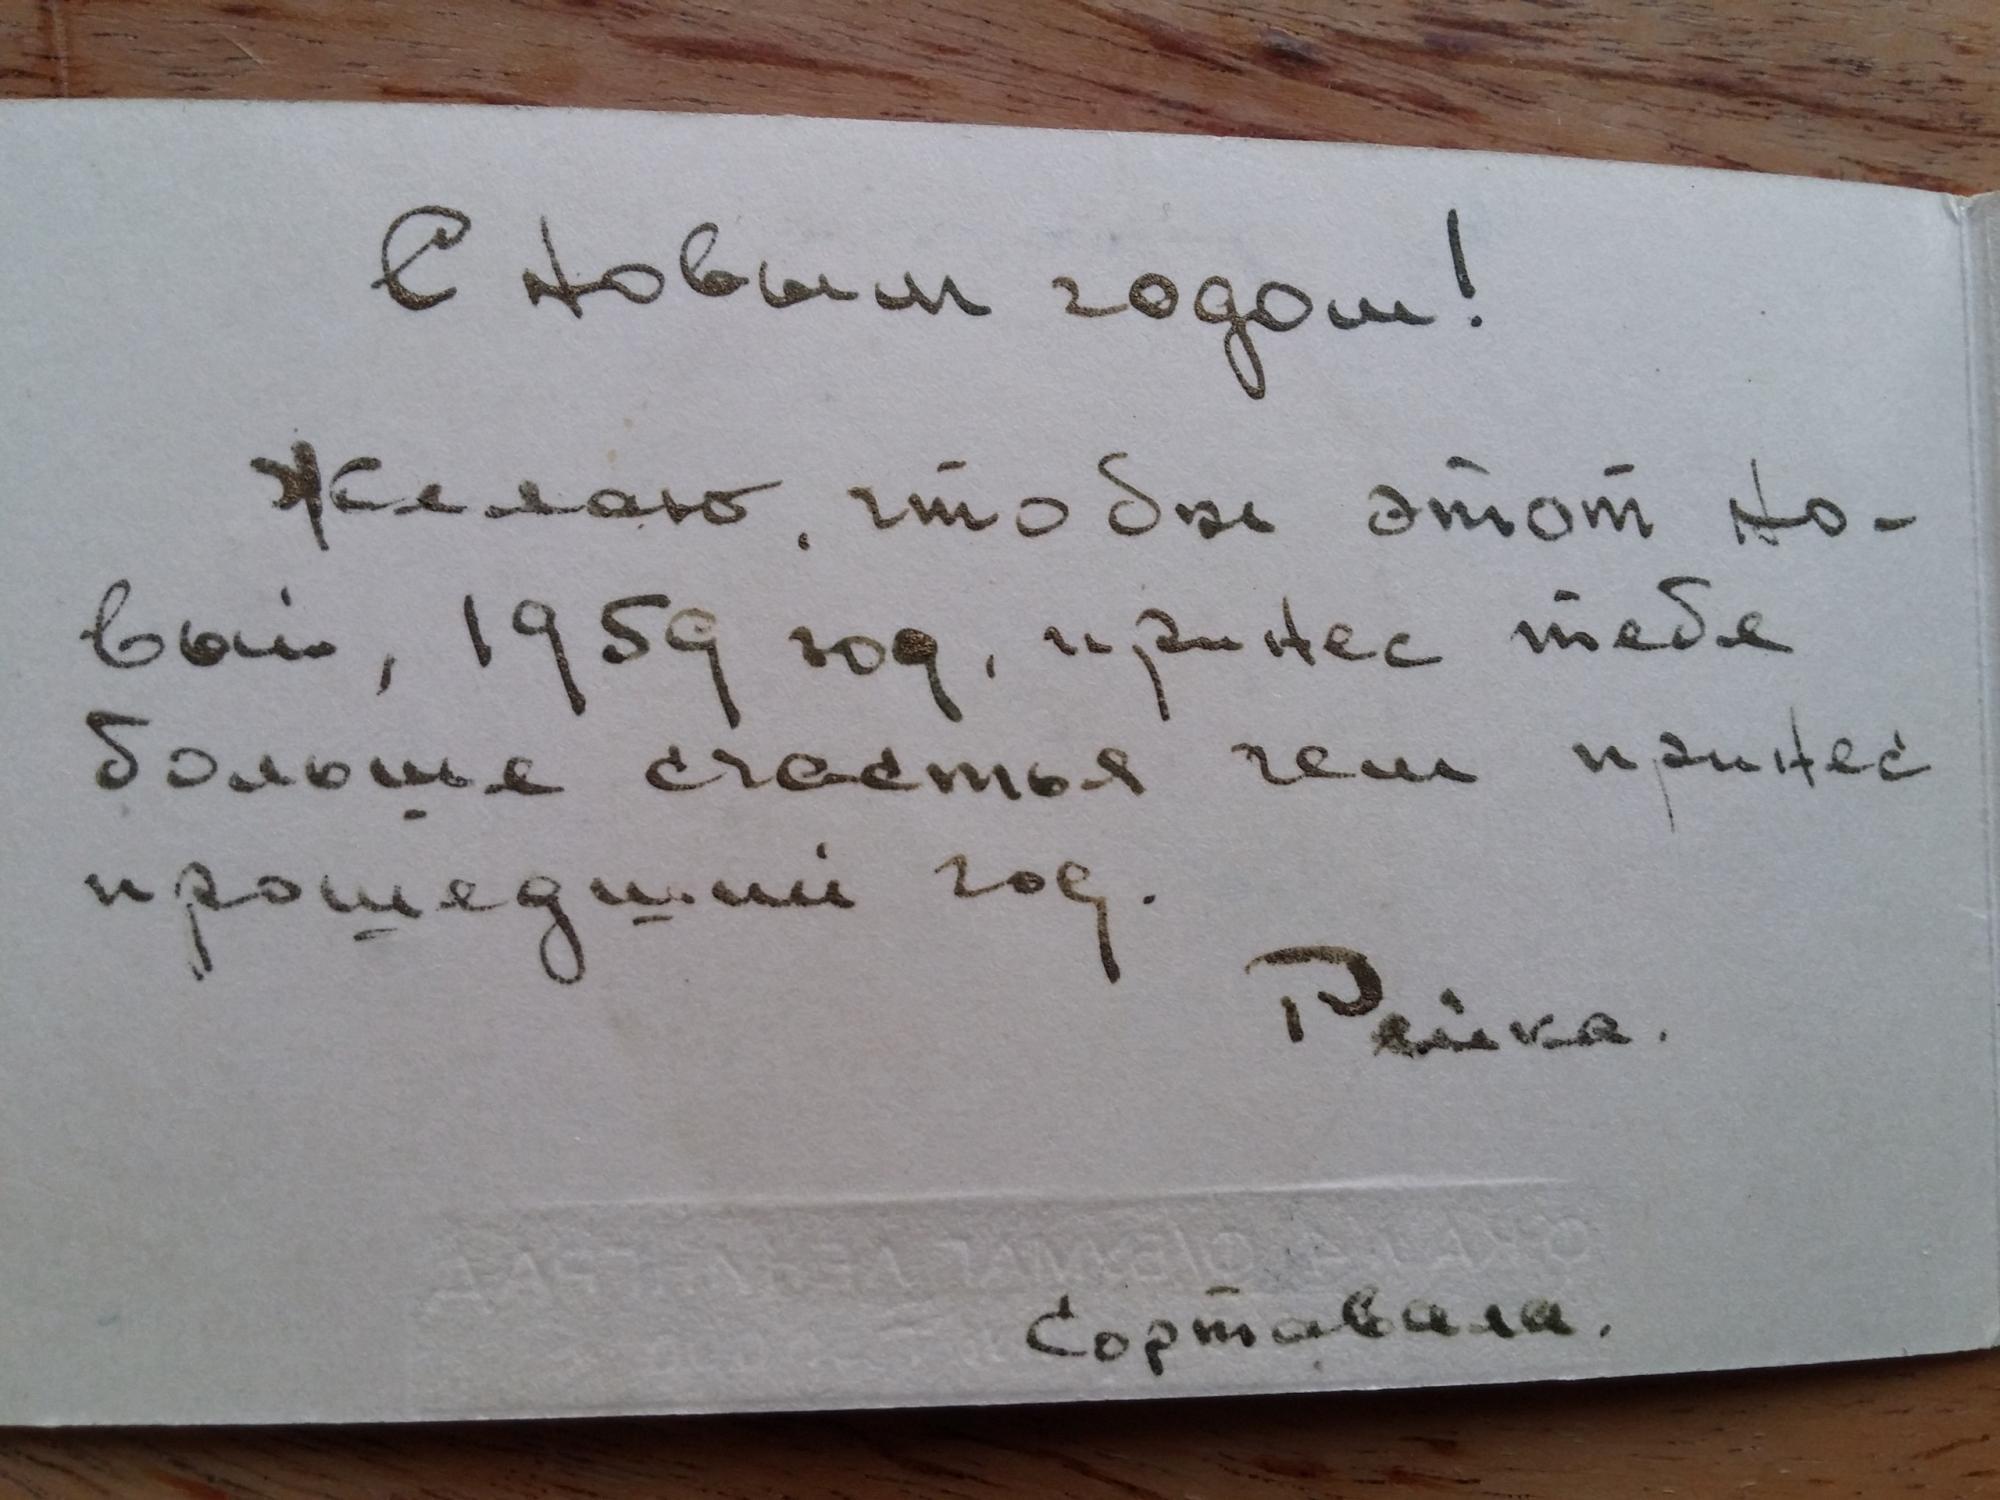 С новым годом!
Желаю, чтобы этот но-
вый, 1959 год, принес тебе
больше счастья чем принес
прошедший год.
Рейка.
Сортавала.